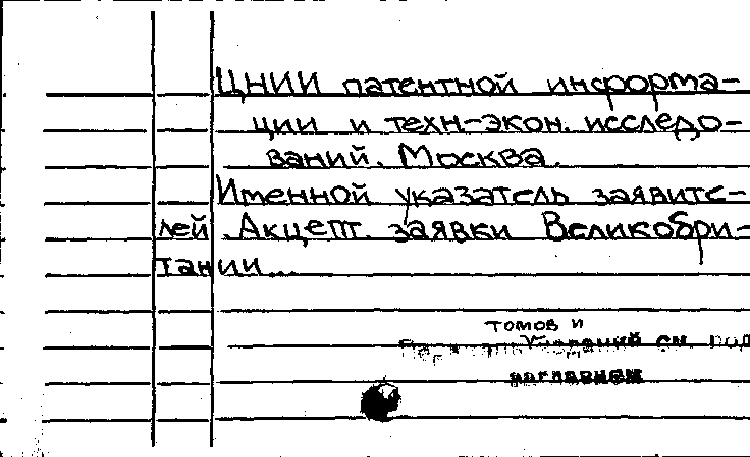 ЦНИИ патентной информа-
ции и техн-экон. исследо-
ваний. Москва.
Именной указатель заявите-
лей. Акцепт. заявки Великобри-
тании...
томов и
см. под
заглавием